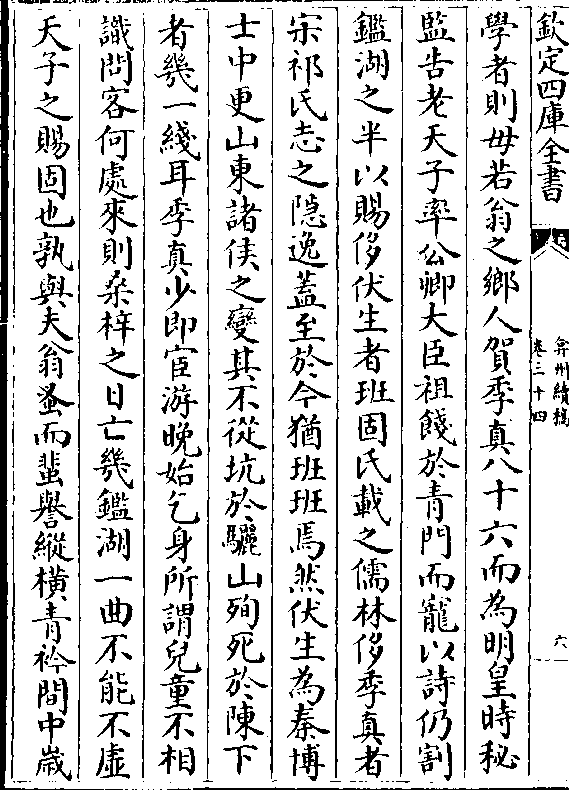 欽定四庫全書
弇州續稿
卷三十四
六
學者則毋若翁之鄉人賀季真八十六而為明皇時秘
監告老天子率公卿大臣祖餞於青門而寵以詩仍割
鑑湖之半以賜侈伏生者班固氏載之儒林侈季真者
宋祁氏志之隱逸蓋至於今猶班班焉然伏生為秦博
士中更山東諸侯之變其不從坑於驪山殉死於陳下
者幾一綫耳季真少即宦游晚始乞身所謂兒童不相
識問客何處來則桑梓之日亡幾鑑湖一曲不能不虛
天子之賜固也孰與夫翁蚤而蜚譽縱横青衿間中歲